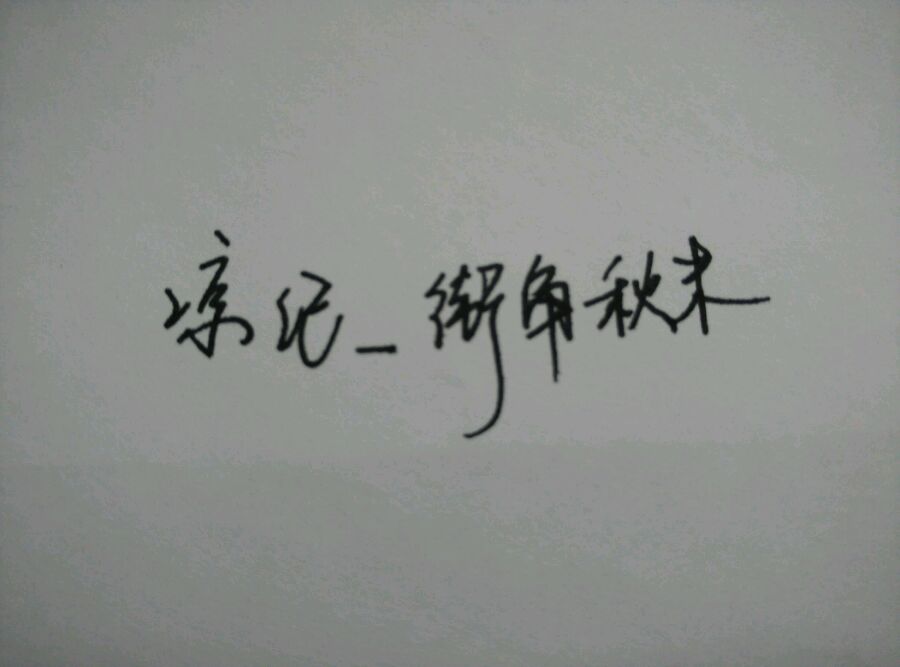 凉纪_街角秋末